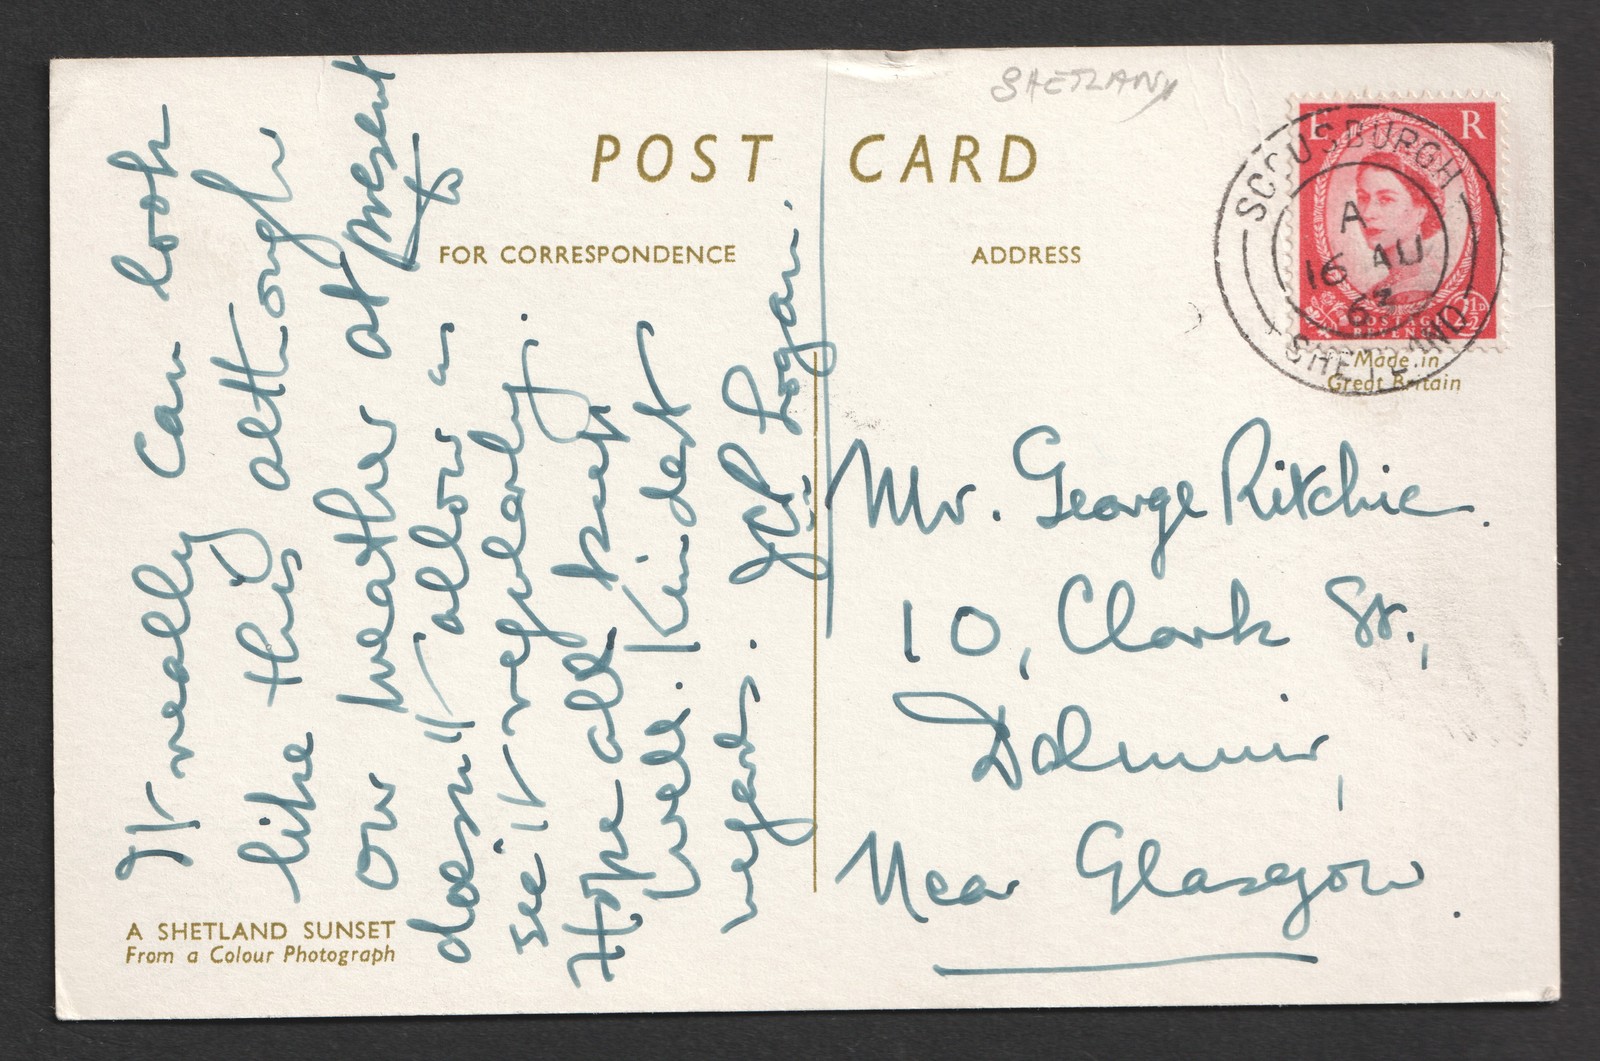 SHETLAND
POST CARD
FOR CORRESPONDENCE
ADDRESS
E R
POSTAGE
REVENUE
2½D
SCOUSBURGH
A
16 AU
63
SHETLAND
Made in
Great Britain
It really can look
like this although
our weather at present
doesn't allow us to
see it regularly.
Hope all keep
well. Kindest
regards. J Logan.
Mr. George Ritchie.
10, Clark St.,
Dalmuir,
Near Glasgow.
A SHETLAND SUNSET
From a Colour Photograph